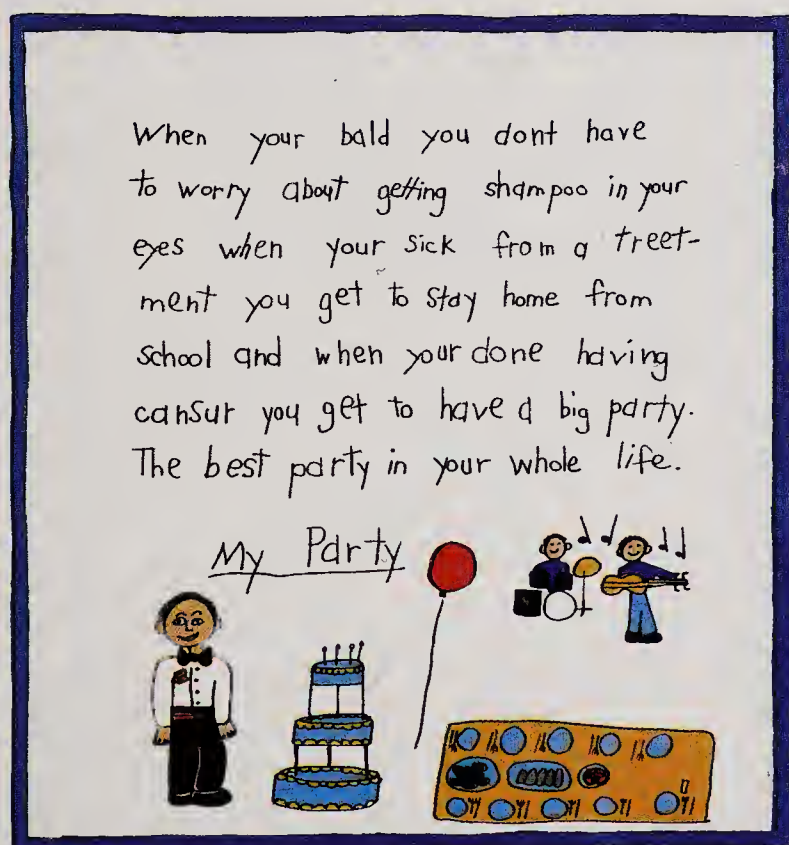 When your bald you dont have
to worry about getting shampoo in your
eyes when your sick from a treet-
ment you get to stay home from
school and when your done having
cansur you get to have a big party.
The best party in your whole life.
My Party